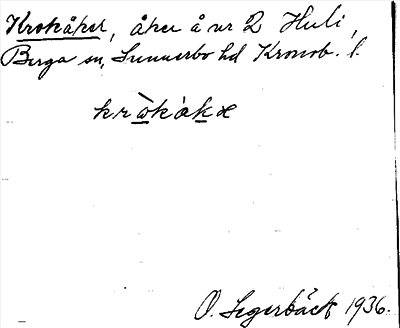 Krokåker, åker å nr 2 Huli,
Berga sn, Sunnerbo hd Kronob. l.
kròkákæ
O. Segerbäck 1936.